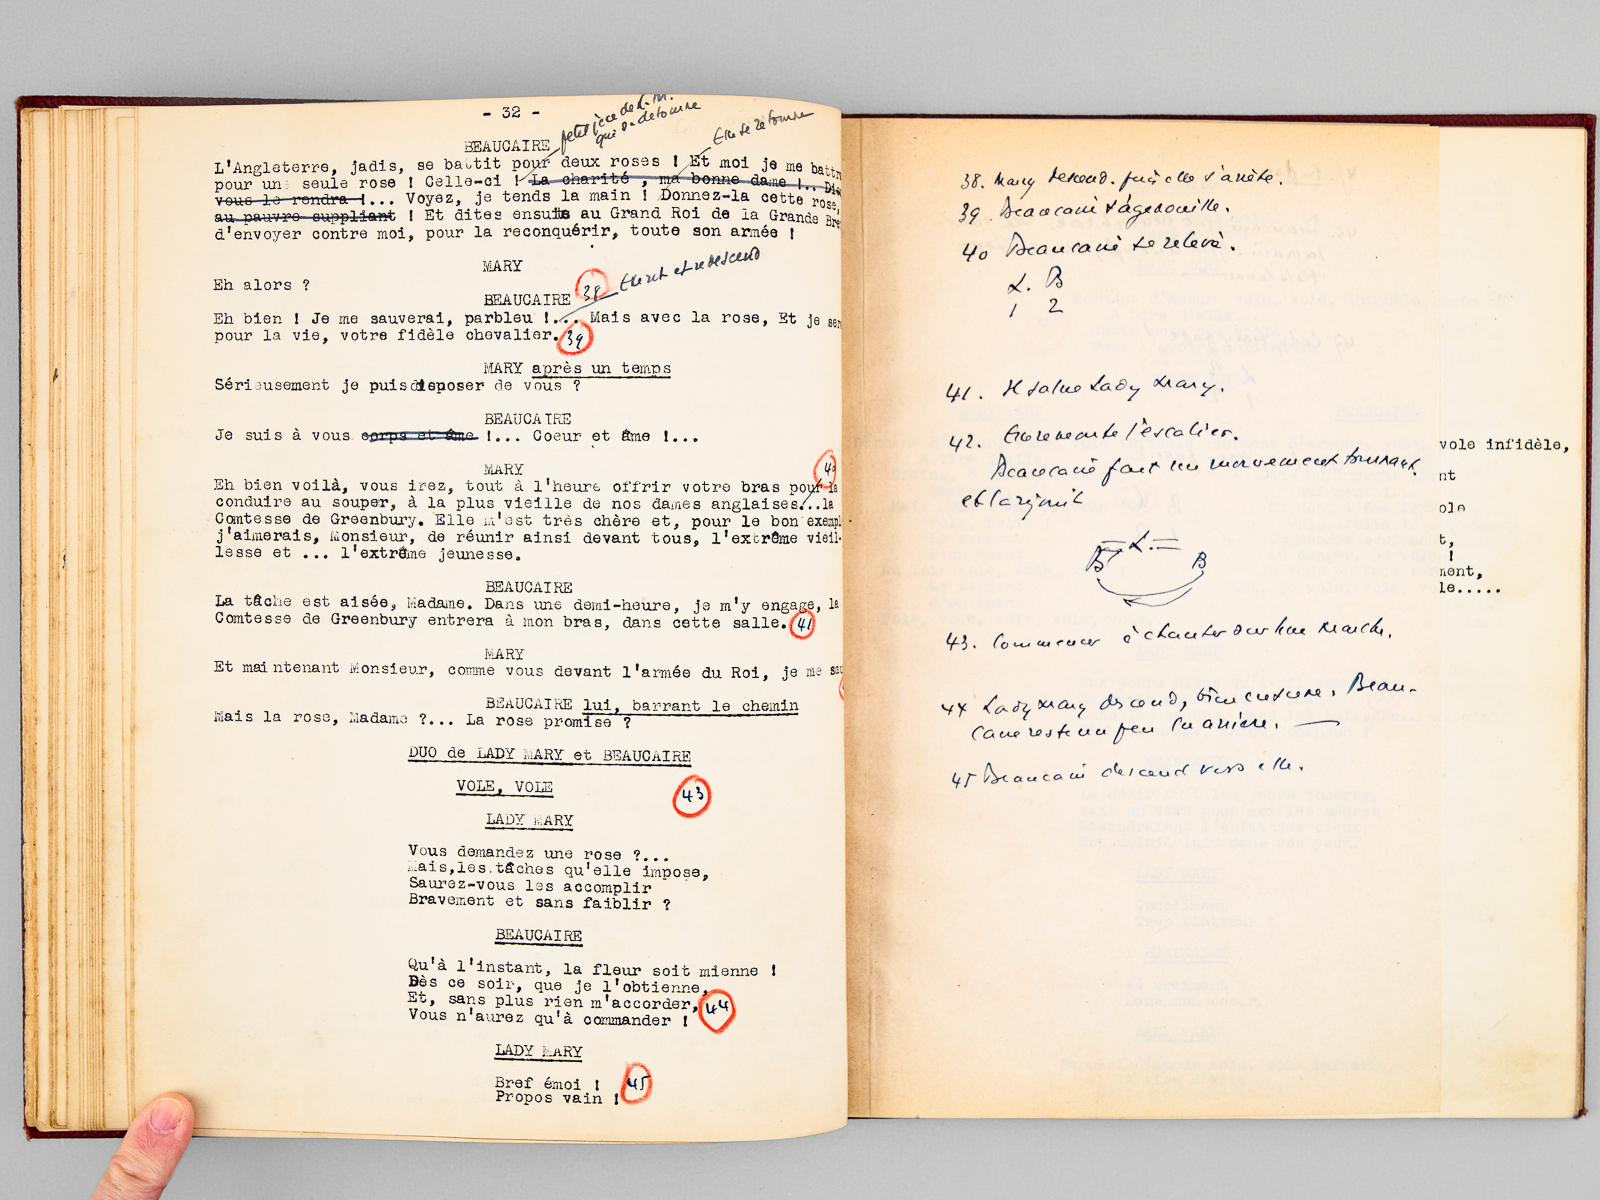 - 32 -
petit jeu de L. M.
qui se detourne
Elle se retourne
BEAUCAIRE
L'Angleterre, jadis, se battit pour deux roses ! Et moi je me battr
pour une seule rose ! Celle-ci ! La charité , ma bonne dame !.. Die
vous le rendra !... Voyez, je tends la main ! Donnez-la cette rose,
au pauvre suppliant ! Et dites ensuite au Grand Roi de la Grande Bre
d'envoyer contre moi, pour la reconquérir, toute son armée !
MARY
Eh alors ?
BEAUCAIRE
38
Elle rit et redescend
Eh bien ! Je me sauverai, parbleu !... Mais avec la rose, Et je ser
pour la vie, votre fidèle chevalier.
39
MARY après un temps
Sérieusement je puis disposer de vous ?
BEAUCAIRE
Je suis à vous corps et âme !... Coeur et âme !...
MARY
40
Eh bien voilà, vous irez, tout à l'heure offrir votre bras pour la
conduire au souper, à la plus vieille de nos dames anglaises...la
Comtesse de Greenbury. Elle m'est très chère et, pour le bon exempl
j'aimerais, Monsieur, de réunir ainsi devant tous, l'extrême vieil-
lesse et ... l'extrême jeunesse.
BEAUCAIRE
La tâche est aisée, Madame. Dans une demi-heure, je m'y engage, la
Comtesse de Greenbury entrera à mon bras, dans cette salle.
41
MARY
Et maintenant Monsieur, comme vous devant l'armée du Roi, je me sau
BEAUCAIRE lui, barrant le chemin
Mais la rose, Madame ?... La rose promise ?
DUO de LADY MARY et BEAUCAIRE
VOLE, VOLE
43
LADY MARY
Vous demandez une rose ?...
Mais,les tâches qu'elle impose,
Saurez-vous les accomplir
Bravement et sans faiblir ?
BEAUCAIRE
Qu'à l'instant, la fleur soit mienne !
Dès ce soir, que je l'obtienne,
Et, sans plus rien m'accorder,
Vous n'aurez qu'à commander !
44
LADY MARY
Bref émoi !
Propos vain !
45
38. Mary descend. puis elle s'arrête.
39. Beaucaire s'agenouille.
40 Beaucaire se relève.
L. B
1 2
41. Il salue Lady Mary.
42. Elle remonte l'escalier.
Beaucaire fait un mouvement tournant
et la rejoint
B L. B
43. Commencer à chanter sur une marche.
44 Lady Mary descend, bien en scène. Beau-
caire reste un peu en arrière.
45 Beaucaire descend vers elle.
vole infidèle,
nt
ole
t,
!
ment,
le.....